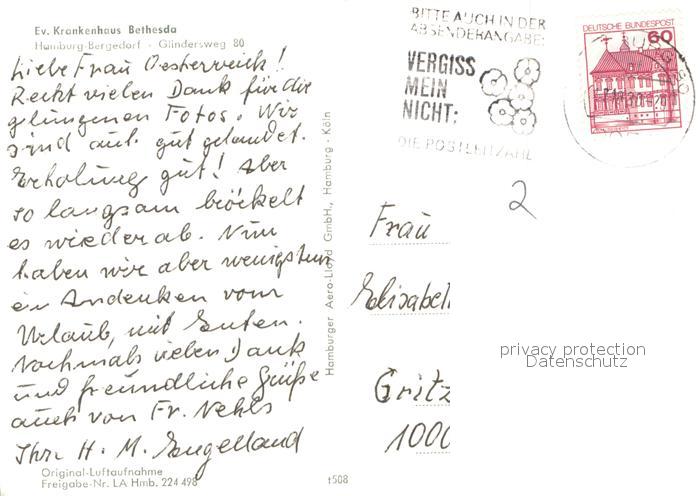 Ev. Krankenhaus Bethesda
Hamburg-Bergedorf · Glindersweg 80
Liebe Frau Oesterreich!
Recht vielen Dank für die
gelungenen Fotos. Wir
sind auch gut gelandet.
Erholung gut! Aber
so langsam bröckelt
es wieder ab. Nun
haben wir aber wenigstens
ein Andenken vom
Urlaub, mit Enten.
Nochmals vielen Dank
und freundliche Grüße
auch von Fr. Nehls
Ihr. H. M. Engelland
Original-Luftaufnahme
Freigabe-Nr. LA Hmb. 224 498
t508
Hamburger Aero-Lloyd GmbH., Hamburg - Köln
BITTE AUCH IN DER
ABSENDERANGABE:
VERGISS
MEIN
NICHT:
DIE POSTLEITZAHL
DEUTSCHE BUNDESPOST
60
2
Frau
Elisabeth
Gritz
1000
privacy protection
Datenschutz